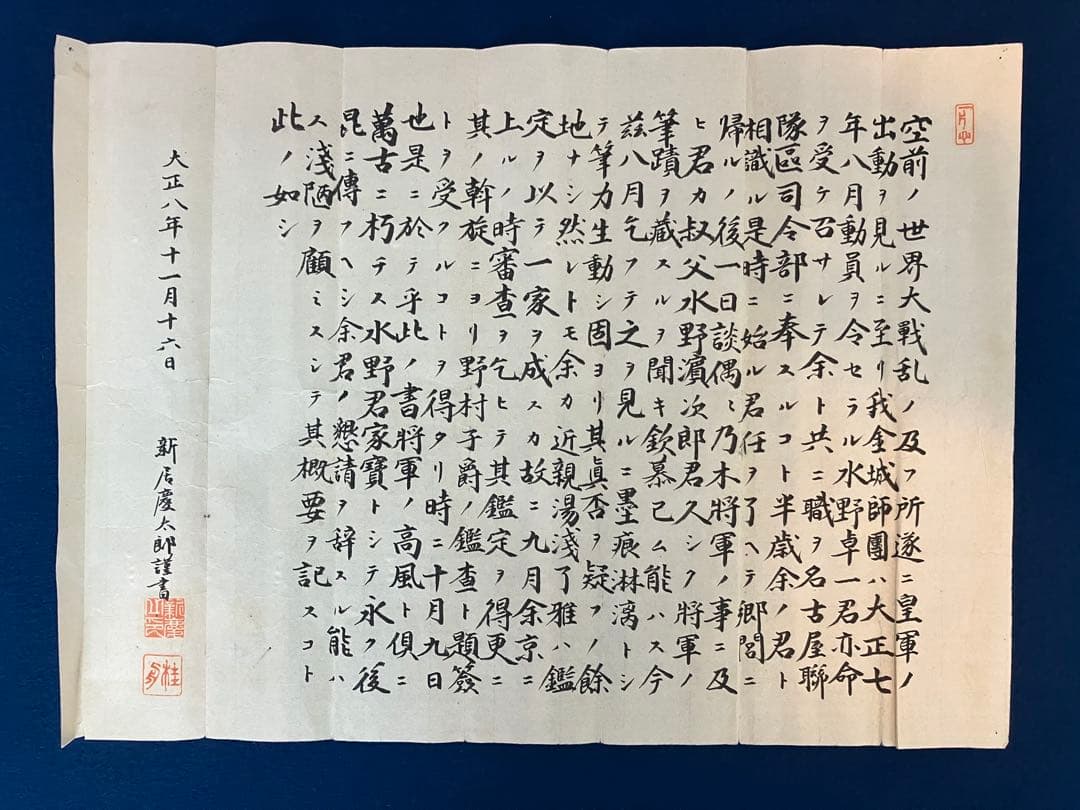 空前ノ世界大戦乱ノ及フ所遂ニ皇軍ノ
出動ヲ見ルニ至リ我金城師團ハ大正七
年八月動員ヲ令セラル水野卓一君亦命
ヲ受ケ召サレテ余ト共ニ職ヲ名古屋聯
隊區司令部ニ奉スルコト半歳余ノ君ト
相識ル是時ニ始ル君任ヲ了ヘテ郷閭ニ
帰ルノ後一日談偶〻乃木將軍ノ事ニ及
ヒ君カ叔父水野濵次郎君久シク將軍ノ
筆蹟ヲ藏スルヲ聞キ欽慕已ム能ハス今
茲八月乞フテ之ヲ見ルニ墨痕淋漓トシ
テ筆力生動シ固ヨリ其眞否ヲ疑フノ餘
地ナシ然レトモ余カ近親湯淺了雅ハ鑑
定ヲ以テ一家ヲ成スカ故ニ九月余京ニ
上ルノ時審査ヲ乞ヒテ其鑑定ヲ得更ニ
其ノ斡旋ニヨリ野村子爵ノ鑑査ト題簽
トヲ受クルコトヲ得タリ時ニ十月九日
也是ニ於テ乎此ノ書將軍ノ高風ト俱ニ
萬古ニ朽テス水野君家寶トシテ永ク後
昆ニ傳フヘシ余君ノ懇請ヲ辞スル能ハ
ス淺陋ヲ顧ミスシテ其概要ヲ記スコト
此ノ如シ
大正八年十一月十六日
新居慶太郎謹書